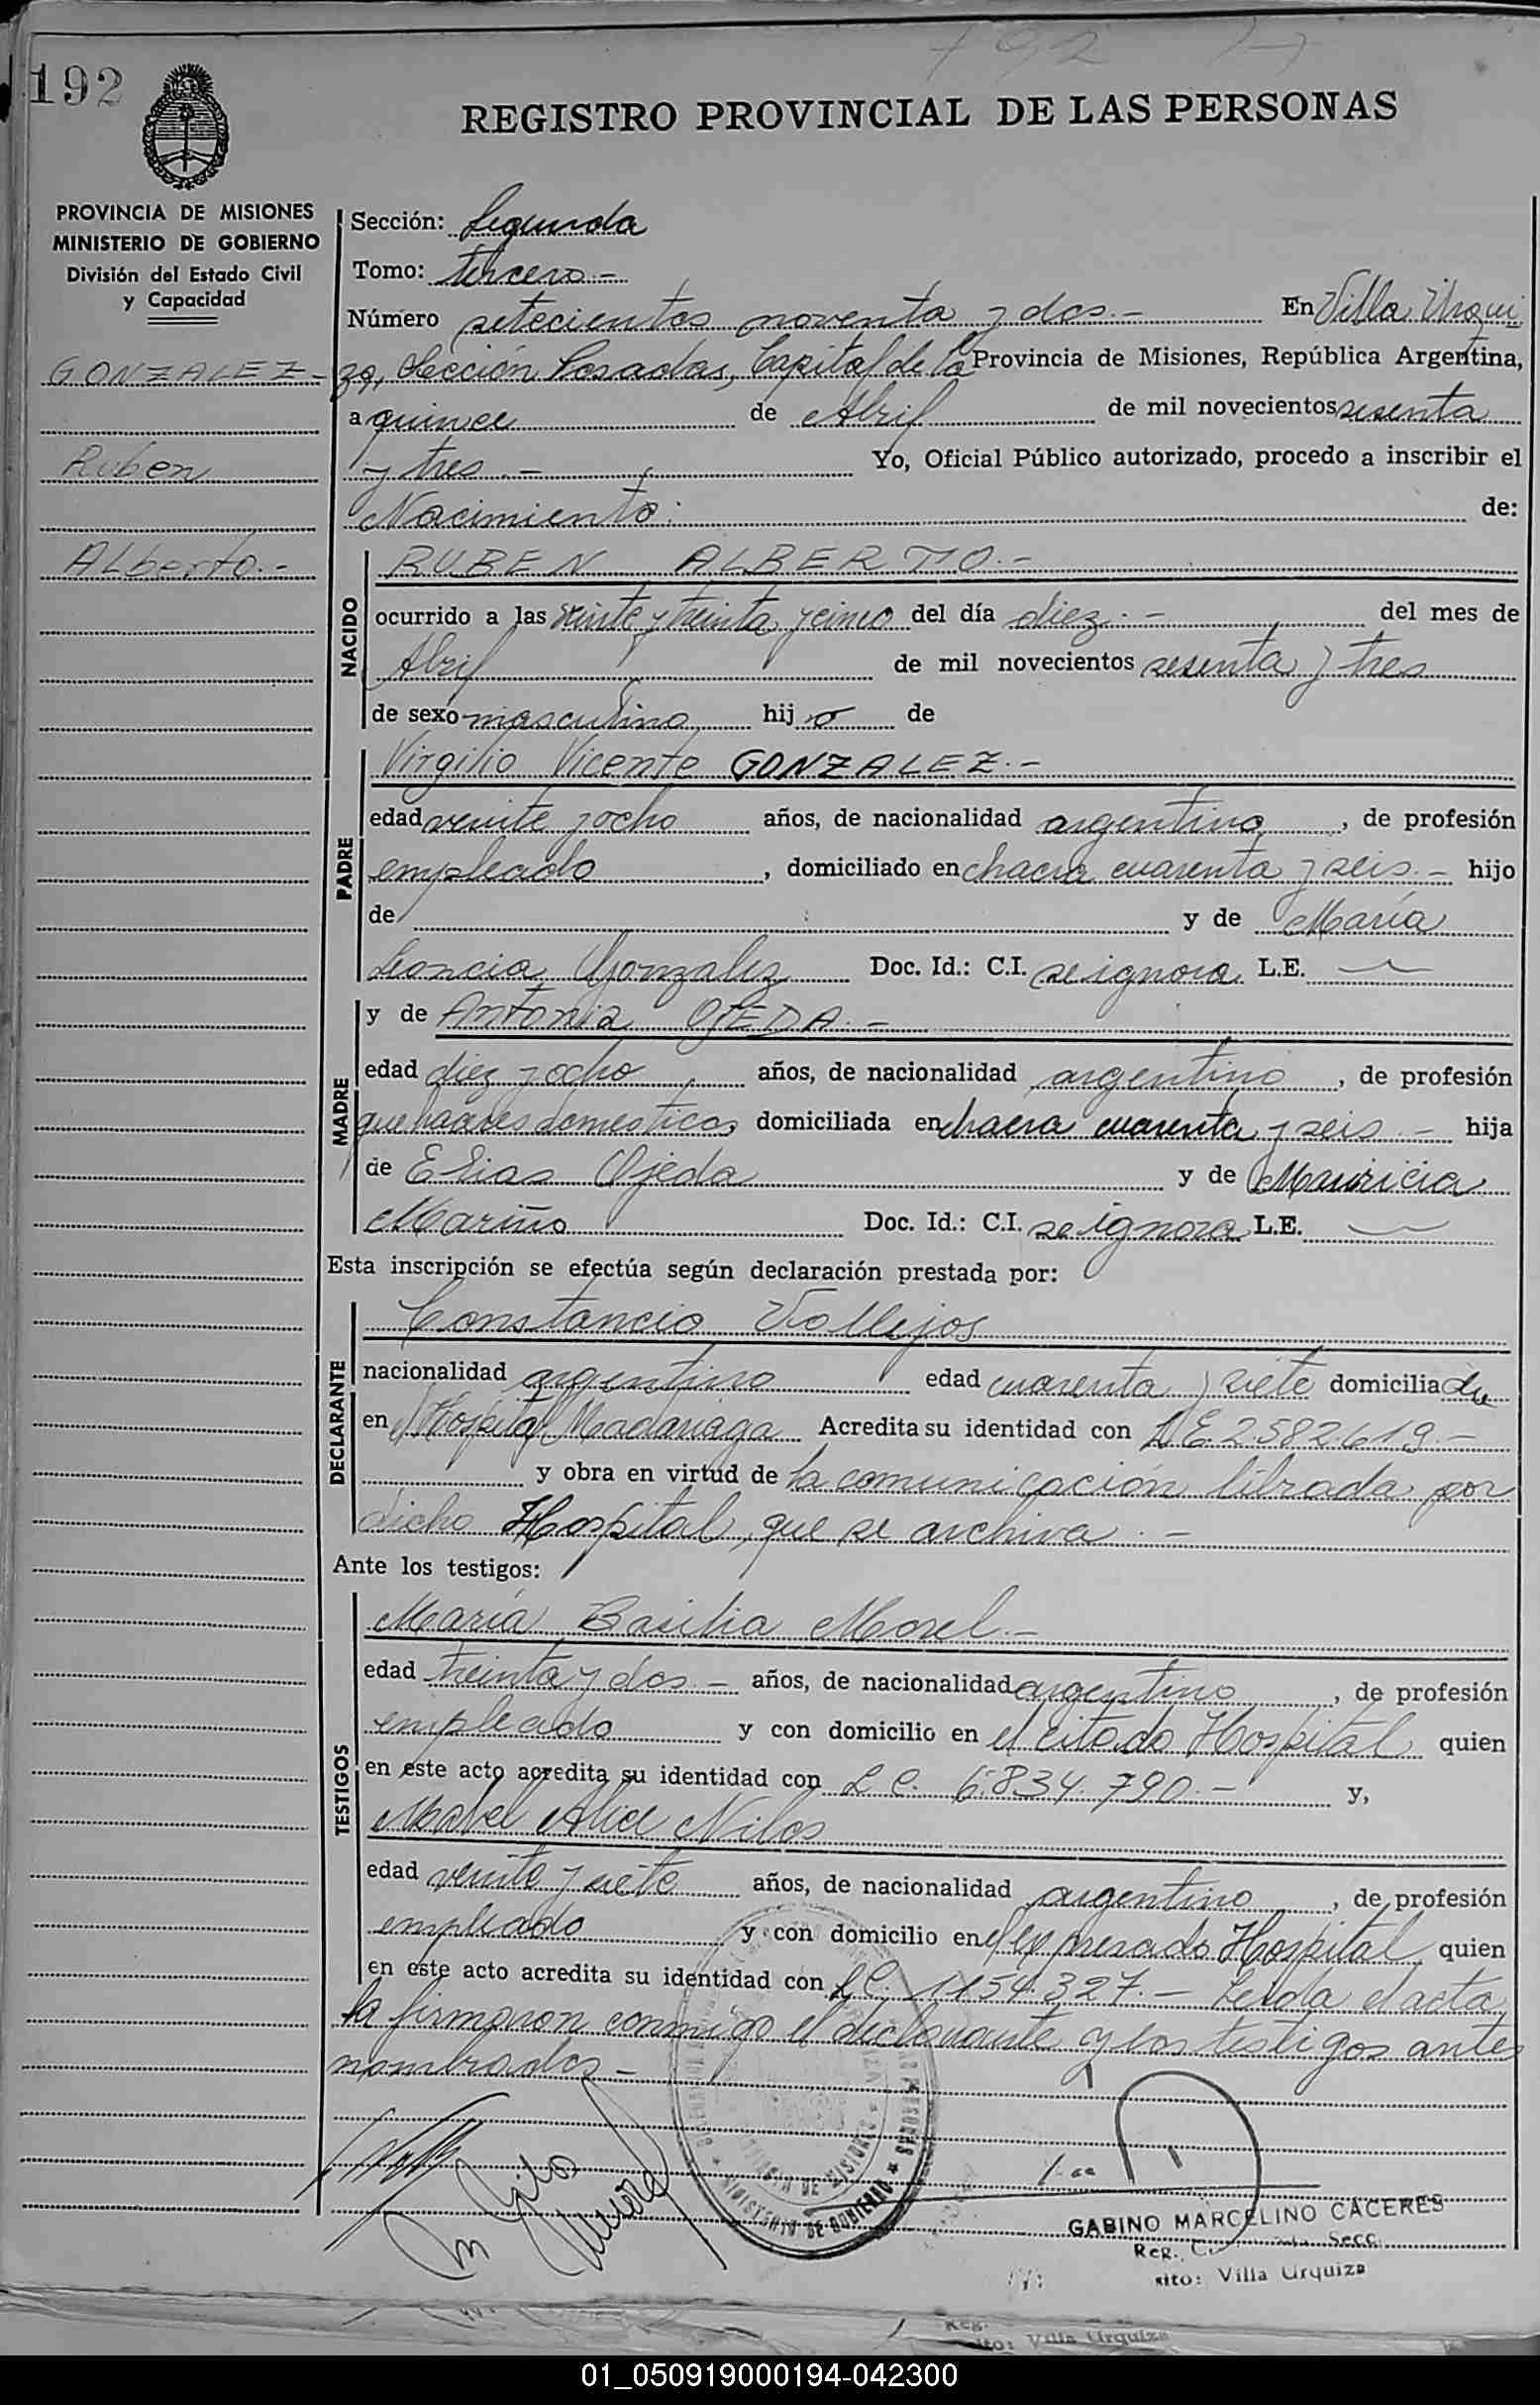 192
792
REGISTRO PROVINCIAL DE LAS PERSONAS
PROVINCIA DE MISIONES
MINISTERIO DE GOBIERNO
División del Estado Civil
y Capacidad
GONZALEZ -
Ruben
ALberto.-
Sección: Segunda
Tomo: tercero.-
Número setecientos noventa y dos.- En Villa Urqui
za, Sección Posadas, Capital de la Provincia de Misiones, República Argentina,
a quince de Abril de mil novecientos sesenta
y tres.- Yo, Oficial Público autorizado, procedo a inscribir el
Nacimiento: de:
NACIDO
RUBEN ALBERTO.-
ocurrido a las veinte y treinta y cinco del día diez.- del mes de
Abril de mil novecientos sesenta y tres
de sexo masculino hijo de
PADRE
Virgilio Vicente GONZALEZ.-
edad veinte y ocho años, de nacionalidad argentina, de profesión
empleado, domiciliado en chacra cuarenta y seis.- hijo
de y de María
Leoncia Gonzalez Doc. Id.: C.I. se ignora L.E.
MADRE
y de Antonia OJEDA.-
edad diez y ocho años, de nacionalidad argentina, de profesión
quehaceres domesticos domiciliada en chacra cuarenta y seis.- hija
de Elias Ojeda y de Mauricia
Mariño Doc. Id.: C.I. se ignora L.E.
Esta inscripción se efectúa según declaración prestada por:
DECLARANTE
Constancio Vallejos
nacionalidad argentino edad cuarenta y siete domiciliado
en Hospital Madariaga Acredita su identidad con L.E. 2.582.619.-
y obra en virtud de la comunicación librada por
dicho Hospital, que se archiva.-
Ante los testigos:
TESTIGOS
María Basilia Morel.-
edad treinta y dos.- años, de nacionalidad argentino, de profesión
empleado y con domicilio en el citado Hospital quien
en este acto acredita su identidad con L.C. 6.834.790.- y,
Mabel Alice Nilos
edad veinte y siete años, de nacionalidad argentino, de profesión
empleado y con domicilio en el expresado Hospital quien
en este acto acredita su identidad con L.C. 1154.327.- Leida el acta,
la firmaron conmigo el declarante y los testigos antes
nombrados.-
MINISTERIO DE GOBIERNO
GABINO MARCELINO CACERES
Reg. Secc.
sito: Villa Urquiza
Reg.
sito: Villa Urquiza
01_050919000194-042300